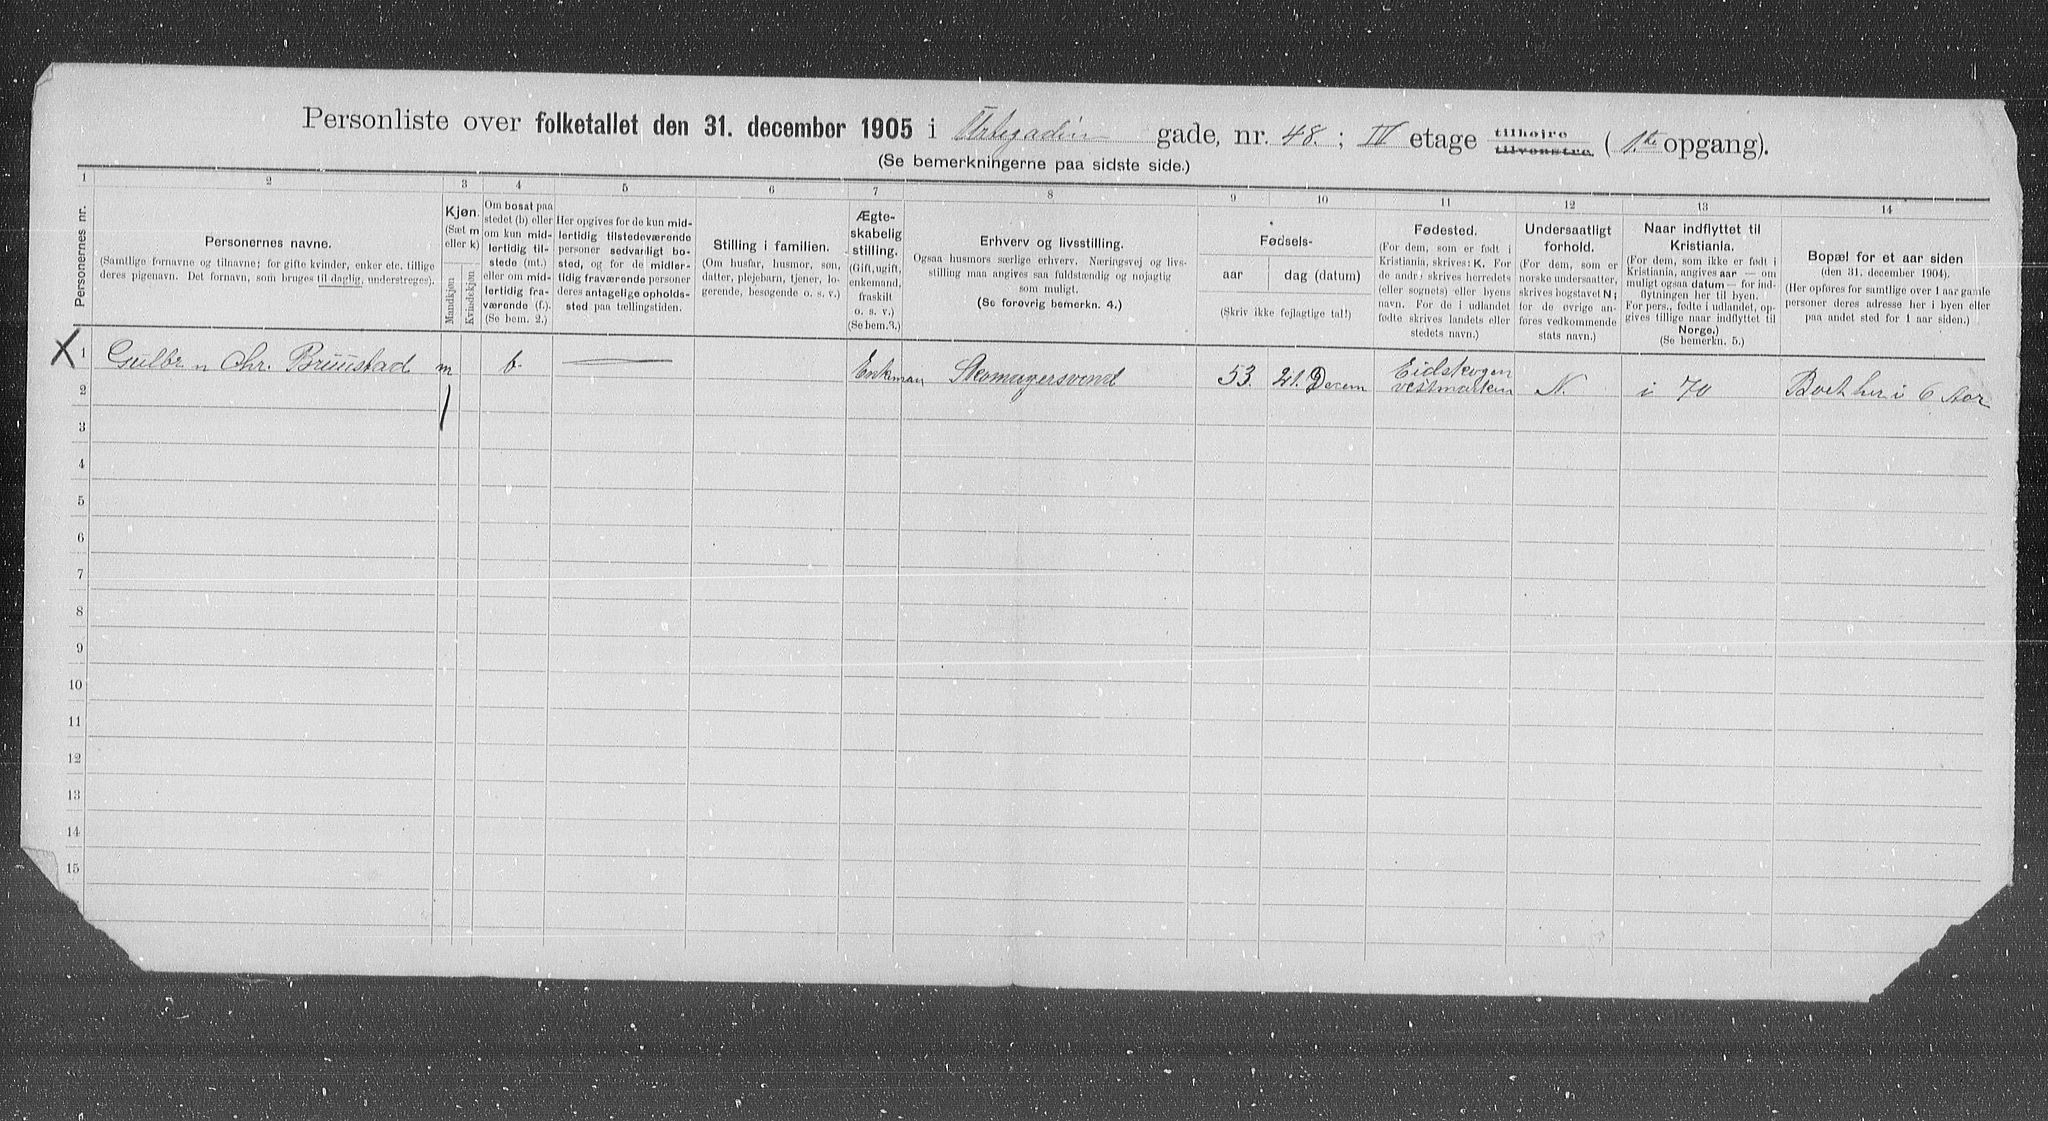 Personliste over folketallet den 31. december 1905 i Urtegaden gade, nr. 48. ; IV etage tilhøjre tilvenstre (1.ste opgang).
(Se bemerkningerne paa sidste side.)
1 2 3 4 5 6 7 8 9 10 11 12 13 14
Personernes nr.
Personernes navne.
(Samtlige fornavne og tilnavne; for gifte kvinder, enker etc. tillige
deres pigenavn. Det fornavn, som bruges til daglig, understreges).
Kjøn.
(Sæt m
eller k)
Mandkjøn
Kvindekjøn
Om bosat paa
stedet (b) eller
om kun mid-
lertidig til-
stede (mt.)
eller om mid-
lertidig fra-
værende (f.).
(Se bem. 2.)
Her opgives for de kun mid-
lertidig tilstedeværende
personer sedvanligt bo-
sted, og for de midler-
tidig fraværende personer
deres antagelige opholds-
sted paa tællingstiden.
Stilling i familien.
(Om husfar, husmor, søn,
datter, plejebarn, tjener, lo-
gerende, besøgende o. s. v.)
Ægte-
skabelig
stilling.
(Gift, ugift,
enkemand,
fraskilt
o. s. v.)
(Se bem. 3.)
Erhverv og livsstilling.
Ogsaa husmors særlige erhverv. Næringsvej og livs-
stilling maa angives saa fuldstændig og nøjagtig
som muligt.
(Se forøvrig bemerkn. 4.)
Fødsels-
aar
dag (datum)
(Skriv ikke fejlagtige tal!)
Fødested.
(For dem, som er født i
Kristiania, skrives: K. For
de andre skrives herredets
(eller sognets) eller byens
navn. For de i udlandet
fødte skrives landets eller
stedets navn.)
Undersaatligt
forhold.
(For dem, som er
norske undersaatter,
skrives bogstavet N;
for de øvrige an-
føres vedkommende
stats navn.)
Naar indflyttet til
Kristiania.
(For dem, som ikke er født i
Kristiania, angives aar — om
muligt ogsaa datum — for ind-
flytningen her til byen.
For pers., født i udlandet, op-
gives tillige naar indflyttet til
Norge.)
(Se bemerkn. 5.)
Bopæl for et aar siden
(den 31. december 1904).
(Her opføres for samtlige over 1 aar gamle
personer deres adresse her i byen eller
paa andet sted for 1 aar siden.)
X 1 Gulbr n Chr. Bruustad m b. Enkman Skomagersvend 53. 21. Decem Eidskogen vestmarken N. i 70 Boet her i 6 Aar
2
3
4
5
6
7
8
9
10
11
12
13
14
15